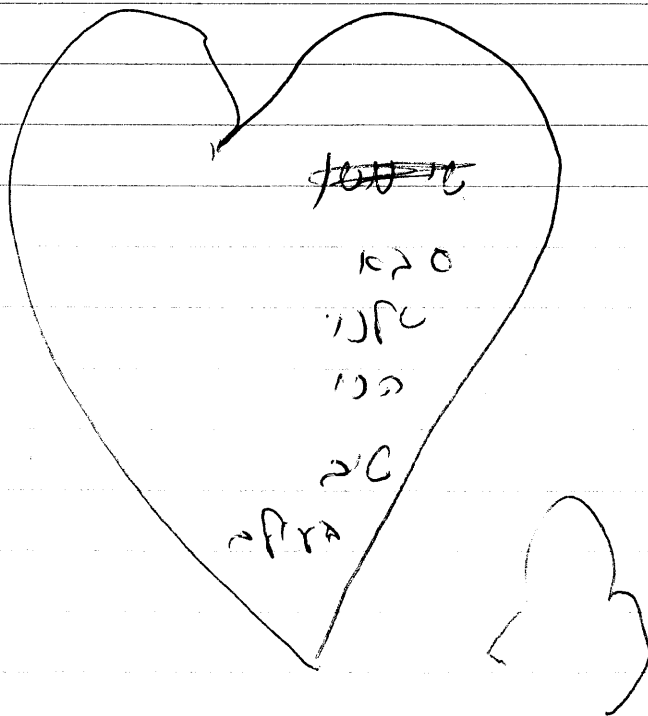 סבא
שלנו
הכי
טוב
בעולם